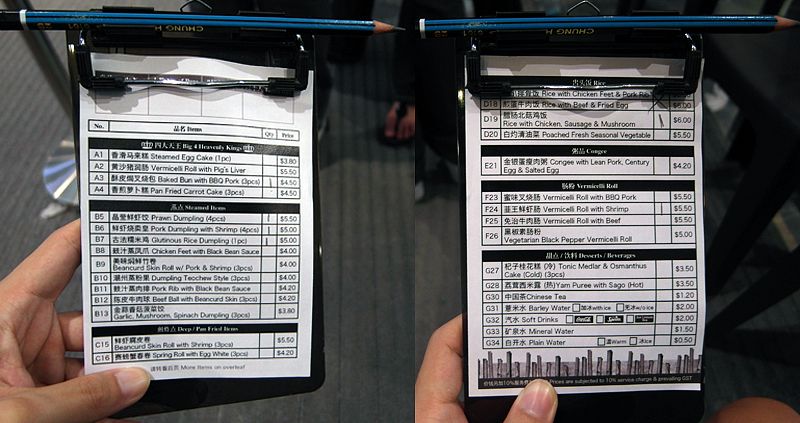 CHUNG H
No. 品名 Items Qty Price
四大天王 Big 4 Heavenly Kings
A1 香滑马来糕 Steamed Egg Cake (1pc) $3.80
A2 黄沙猪润肠 Vermicelli Roll with Pig's Liver $5.50
A3 酥皮焗叉烧包 Baked Bun with BBQ Pork (3pcs) $4.50
A4 香煎萝卜糕 Pan Fried Carrot Cake (3pcs) $4.50
蒸点 Steamed Items
B5 晶莹鲜虾饺 Prawn Dumpling (4pcs) $5.50
B6 鲜虾烧卖皇 Pork Dumpling with Shrimp (4pcs) $5.00
B7 古法糯米鸡 Glutinous Rice Dumpling (1pc) $5.00
B8 豉汁蒸凤爪 Chicken Feet with Black Bean Sauce $4.00
B9 美味焖鲜竹卷
Beancurd Skin Roll w/ Pork & Shrimp (3pcs) $4.00
B10 潮州蒸粉果 Dumpling Teochew Style (3pcs) $4.00
B11 豉汁蒸肉排 Pork Rib with Black Bean Sauce $4.20
B12 陈皮牛肉球 Beef Ball with Beancurd Skin (3pcs) $4.20
B13 金蒜香菇菠菜饺
Garlic, Mushroom, Spinach Dumpling (3pcs) $3.80
Deep / Pan Fried Items
C15 鲜虾腐皮卷
Beancurd Skin Roll with Shrimp (3pcs) $5.50
C16 赛螃蟹春卷 Spring Roll with Egg White (3pcs) $4.20
请转看后页 More Items on overleaf
CHUNG H
饭 Rice
排骨饭 Rice with Chicken Feet & Pork Rib
D18 煎蛋牛肉饭 Rice with Beef & Fried Egg $6.00
D19 腊肠北菇鸡饭
Rice with Chicken, Sausage & Mushroom $6.00
D20 白灼清油菜 Poached Fresh Seasonal Vegetable $5.50
粥品 Congee
E21 金银蛋瘦肉粥 Congee with Lean Pork, Century
Egg & Salted Egg $4.20
肠粉 Vermicelli Roll
F23 蜜味叉烧肠 Vermicelli Roll with BBQ Pork $5.50
F24 韭王鲜虾肠 Vermicelli Roll with Shrimp $5.50
F25 免治牛肉肠 Vermicelli Roll with Beef $5.50
F26 黑椒素肠粉
Vegetarian Black Pepper Vermicelli Roll $5.00
甜点 / 饮料 Desserts / Beverages
G27 杞子桂花糕 (冷) Tonic Medlar & Osmanthus
Cake (Cold) (3pcs) $3.50
G28 荔茸西米露 (热) Yam Puree with Sago (Hot) $3.50
G30 中国茶 Chinese Tea $1.20
G31 薏米水 Barley Water 加冰 with ice 无冰 w/o ice $2.00
G32 汽水 Soft Drinks Coca-Cola Sprite $2.00
G33 矿泉水 Mineral Water $1.50
G34 白开水 Plain Water 温 Warm 冰 Ice $0.50
价钱另加10%服务费 Prices are subjected to 10% service charge & prevailing GST